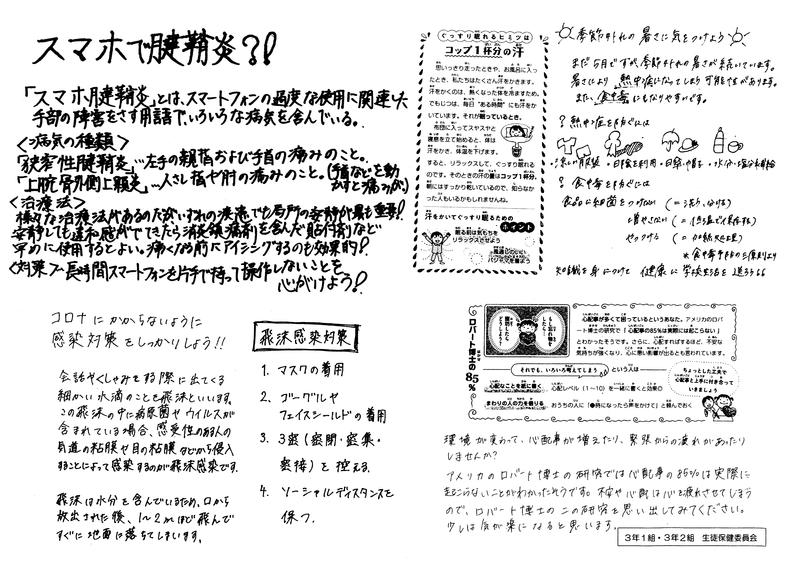 スマホで腱鞘炎?!
「スマホ腱鞘炎」とは、スマートフォンの過度な使用に関連した
手部の障害をさす用語でいろいろな病気を含んでいる。
<病気の種類>
「狭窄性腱鞘炎」…左手の親指および手首の痛みのこと。
「上腕骨外側上顆炎」…人さし指や肘の痛みのこと。(手首などを動かすと痛みが)
<治療法>
様々な治療法があるのだがいずれの疾患でも局所の安静が最も重要!
安静しても違和感がでてきたら消炎鎮痛剤を含んだ貼付剤など
早めに使用するとよい。痛くなる前にアイシングするのも効果的!
<対策>長時間スマートフォンを片手で持って操作しないことを
心がけよう!
ぐっすり眠れるヒミツは
コップ1杯分の汗
思いっきり走ったときや、お風呂に入っ
たとき、私たちはたくさん汗をかきます。
汗をかくのは、熱くなった体を冷ますため。
でもじつは、毎日“ある時間”にも汗をか
いています。それが眠っているとき。
布団に入ってスヤスヤと
寝息を立て始めると、体は
汗をかき、体温を下げます。
すると、リラックスして、ぐっすり眠れる
のです。そのときの汗の量はコップ1杯分。
朝にはすっかり乾いているので、知らなか
った人もいるかもしれませんね。
汗をかいてぐっすり眠るための
ポイント
眠る前は気もちを
リラックスさせよう
風通しのいい
パジャマを着よう
季節外れの暑さに気をつけよう
まだ5月ですが、季節外れの暑さが続いています。
暑さにより熱中症になってしまう可能性があります。
また、食中毒にもなりやすいです。
? 熱中症を防ぐには
・涼しい服装 ・日陰を利用 ・日傘、帽子 ・水分・塩分補給
? 食中毒を防ぐには
食品に細菌をつけない(=洗う、分ける)
増やさない(=低温で保存する)
やっつける(=加熱処理)
*食中毒予防の三原則より
知識を身につけて 健康に学校生活を送ろう
コロナにかからないように
感染対策をしっかりしよう!!
会話やくしゃみをする際に出てくる
細かい水滴のことを飛沫といいます。
この飛沫の中に病原菌やウイルスが
含まれている場合、感受性のある人の
気道の粘膜や目の粘膜などから侵入
することによって感染するのが飛沫感染です。
飛沫は水分を含んでいるため、口から
放出された後、1~2mほど飛んで
すぐに地面に落ちてしまいます。
飛沫感染対策
1. マスクの着用
2. ゴーグルや
フェイスシールドの着用
3. 3密(密閉・密集・
密接)を控える
4. ソーシャルディスタンスを
保つ。
ロバート博士の85%
心配事が多くて困っているというあなた。アメリカのロバ
ート博士の研究で「心配事の85%は実際には起こらない」
とわかったそうです。さらに、心配すればするほど、不安な
気持ちが強くなり、心に悪い影響が出るとも言われています。
それでも、いろいろ考えてしまう という人は
心配なことを紙に書く 心配レベル(1~10)を一緒に書くと効果◎
まわりの人の力を借りる おうちの人に「●時になったら声をかけて」と頼んでおく
ちょっとした工夫で
心配事と上手に付き合って
いきましょう
環境が変わって、心配事が増えたり、緊張からの疲れがあったり
しませんか?
アメリカのロバート博士の研究では心配事の85%は実際に
起こらないことがわかったそうです。不安や心配は心を疲れさせてしまう
ので、ロバート博士のこの研究を思い出してみてください。
少しは気が楽になると思います。
3年1組・3年2組 生徒保健委員会